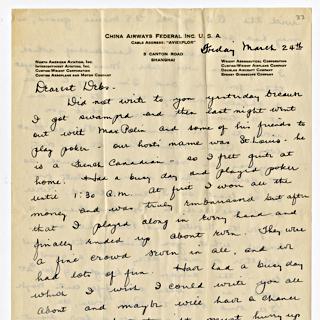 33
CHINA AIRWAYS FEDERAL INC. U. S. A.
CABLE ADDRESS: "AVIEXPLOR"
3 CANTON ROAD
SHANGHAI
Friday March 24th
NORTH AMERICAN AVIATION, INC.
INTERCONTINENT AVIATION, INC.
CURTISS-WRIGHT CORPORATION
CURTISS AEROPLANE AND MOTOR COMPANY
WRIGHT AERONAUTICAL CORPORATION
CURTISS-WRIGHT AIRPLANE COMPANY
DOUGLAS AIRCRAFT COMPANY
SPERRY GYROSCOPE COMPANY
Dearest Debs.
Did not write to you yesterday because
I got swamped and then last night went
out with Max Polin and some of his friends to
play poker - our hosts name was St. Louis - he
is a French Canadian - so I felt quite at
home. Had a busy day and played poker
until 1:30 A.M. At first I won all the
money and was truly embarassed but after
that I played along in every hand and
finally ended up about even. They were
a fine crowd seven in all, and we
had lots of fun. Have had a busy day
which I wish I could write you all
about and maybe we'll have a chance
must hurry up